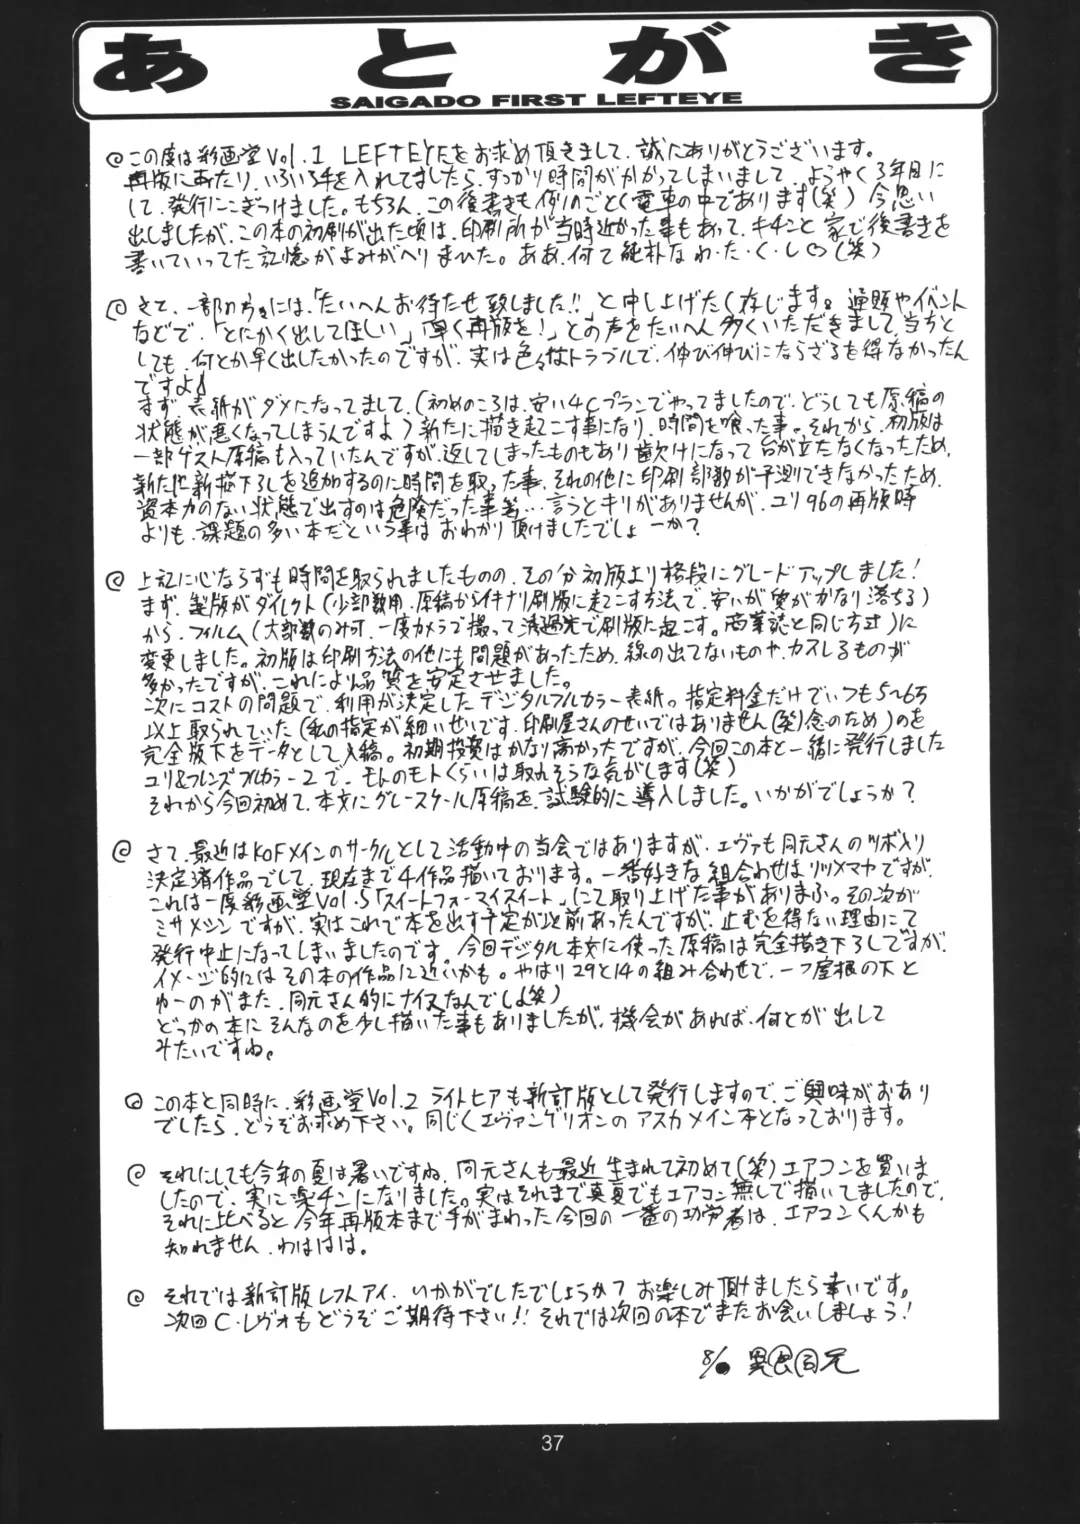 あとがき
SAIGADO FIRST LEFTEYE
@この度は彩画堂Vol.1 LEFTEYEをお求め頂きまして、誠にありがとうございます。
再版にあたり、いろいろ手を入れてましたら、すっかり時間がかかってしまいまして、ようやく3年目に
して、発行にこぎつけました。もちろん、この後書きも例のごとく電車の中であります(笑)今思い
出しましたが、この本の初刷が出た頃は、印刷所が当時近かった事もあって、キチンと家で後書きを
書いていってた記憶がよみがへりまひた。ああ、何て純朴なわ・た・く・し♡(笑)
@さて、一部の方々には、「たいへんお待たせ致しました!!」と申し上げたく存じます。通販やイベント
などで、「とにかく出してほしい」「早く再版を!」との声をたいへん多くいただきまして、当方と
しても、何とか早く出したかったのですが、実は色々なトラブルで、伸び伸びにならざるを得なかったん
ですよ♪
まず、表紙がダメになってまして、(初めのころは、安い4Cプランでやってましたので、どうしても原稿の
状態が悪くなってしまうんですよ)新たに描き起こす事になり、時間を喰った事。それから、初版は
一部ゲスト原稿も入っていたんですが、返してしまったものもあり歯欠けになって台が立たなくなったため、
新たに新描下ろしを追加するのに時間を取った事、それの他に印刷部数が予測できなかったため、
資本力のない状態で出すのは危険だった事等…言うとキリがありませんが、ユリ96の再版時
よりも、課題の多い本だという事はおわかり頂けましたでしょーか?
@上記に心ならずも時間を取られましたものの、その分初版より格段にグレードアップしました!
まず、製版がダイレクト(少部数用、原稿からイキナリ刷版に起こす方法で、安いが質がかなり落ちる)
から、フィルム(大部数のみ可、一度カメラで撮って透過光で刷版に起こす。商業誌と同じ方式)に
変更しました。初版は印刷方法の他にも問題があったため、線の出てないものや、カスレるものが
多かったですが、これにより品質を安定させました。
次にコストの問題で、利用が決定したデジタルフルカラー表紙。指定料金だけでいつも5〜6万
以上取られていた(私の指定が細いせいです、印刷屋さんのせいではありません(笑)念のため)のを
完全版下をデータとして入稿。初期投資はかなり高かったですが、今回この本と一緒に発行しました
ユリ&フレンズフルカラー2で、モトのモトくらいは取れそうな気がします(笑)
それから今回初めて、本文にグレースケール原稿を、試験的に導入しました。いかがでしょうか?
@さて、最近はKOFメインのサークルとして活動中の当会ではありますが、エヴァも同元さんのツボ入り
決定済作品でして、現在まで4作品描いております。一番好きな組合わせはリツメマヤですが、
これは一度彩画堂Vol.5「スイートフォーマイスイート」にて取り上げた事がありまふ。その次が
ミサメシンですが、実はこれで本を出す予定が以前あったんですが、止むを得ない理由にて
発行中止になってしまいましたのです。今回デジタル本文に使った原稿は完全描き下ろしですが、
イメージ的にはその本の作品に近いかも。やはり29と14の組み合わせで、一つ屋根の下と
ゆーのがまた、同元さん的にナイスなんでしょ(笑)
どっかの本にそんなのを少し描いた事もありましたが、機会があれば、何とか出して
みたいですね。
@この本と同時に、彩画堂Vol.2 ライトヒアも新訂版として発行しますので、ご興味がおあり
でしたら、どうぞお求め下さい。同じくエヴァンゲリオンのアスカメイン本となっております。
@それにしても今年の夏は暑いですね、同元さんも最近生まれて初めて(笑)エアコンを買いま
したので、実に楽チンになりました。実はそれまで真夏でもエアコン無しで描いてましたので、
それに比べると今年再版本まで手がまわった今回の一番の功労者は、エアコンくんかも
知れません、わははは。
@それでは新訂版レフトアイ、いかがでしたでしょうか? お楽しみ頂けましたら幸いです。
次回C・レヴォもどうぞご期待下さい!!それでは次回の本でまたお会いしましょう!
37